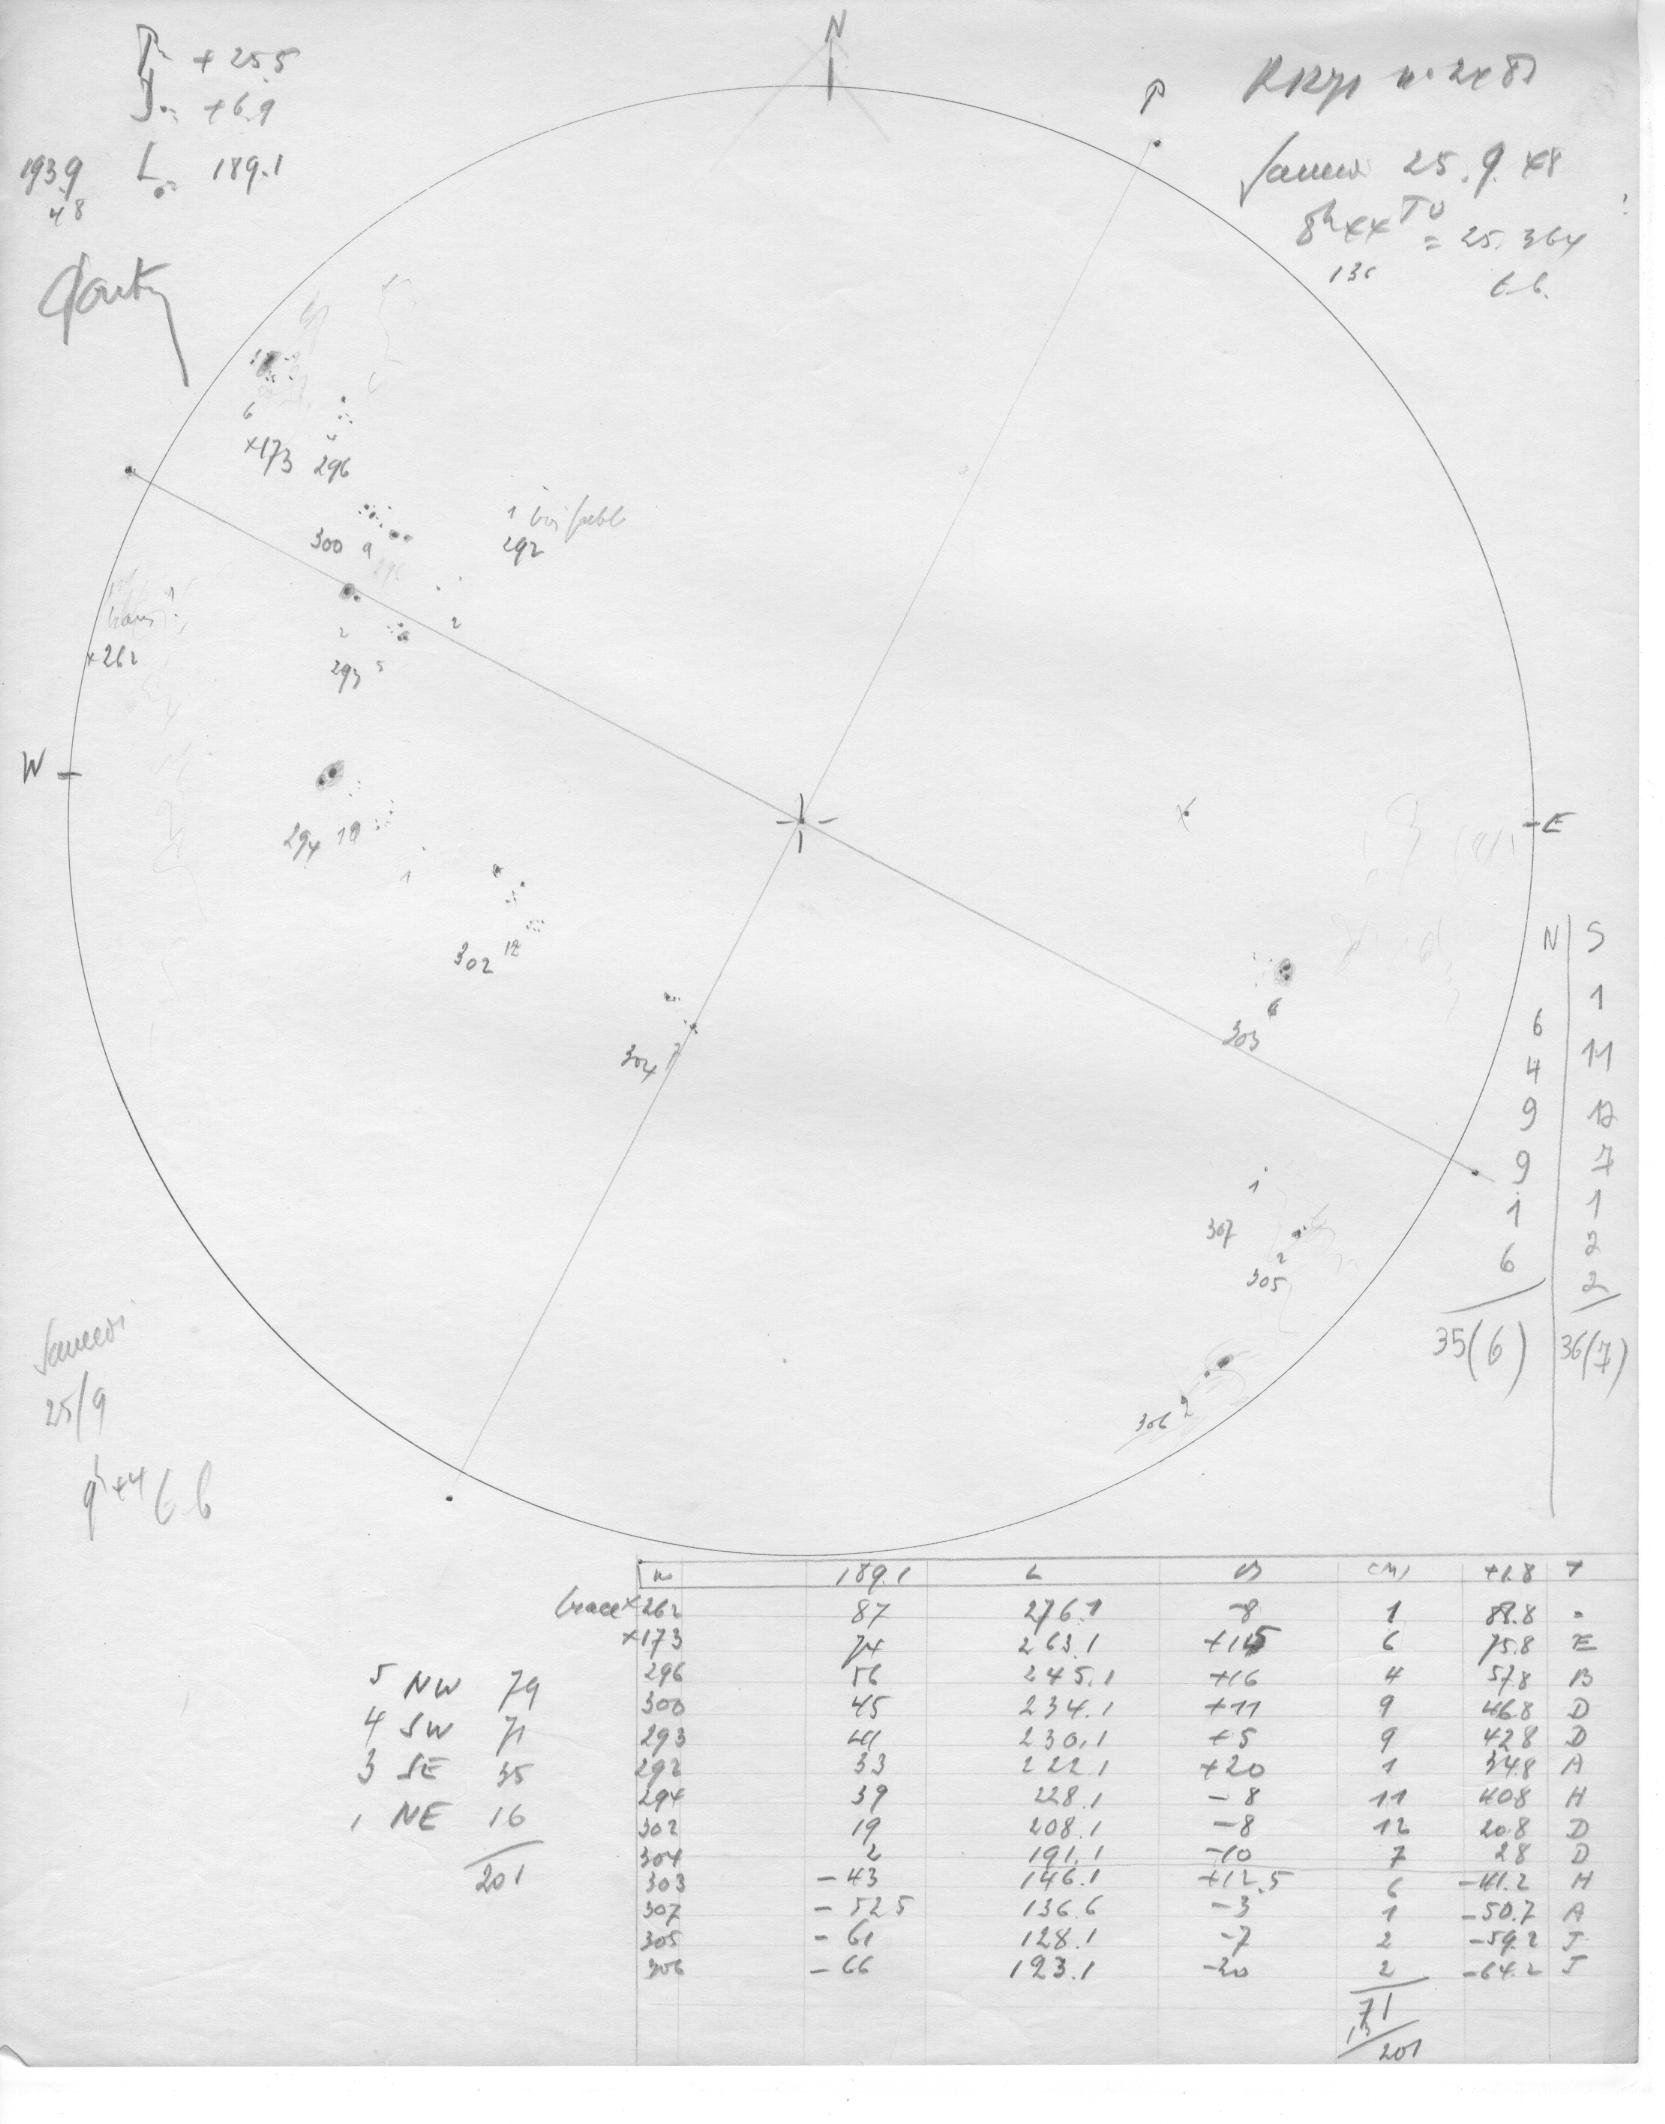 N
P + 25.5
+6.9
1939 L 189.1
48
P
25.9.48
8h44 TU = 25.364
136
6
×173 296
300 9
1
292
2
2
293 5
×262
W
E
294 10
1
302 12
304 7
6
303
1
307
2
305
306 2
N S
1
6
11
4
9 12
9 7
1 1
6 2
2
35(6) 36(7)
Samedi
25/9
9h44
n 189.1 L B +1.8 T
trace ×262 87 276.1 -8 1 88.8 -
×173 74 263.1 +15 6 75.8 E
296 56 245.1 +16 4 57.8 B
300 45 234.1 +11 9 46.8 D
293 41 230.1 +5 9 42.8 D
292 33 222.1 +20 1 34.8 A
294 39 228.1 -8 11 40.8 H
302 19 208.1 -8 12 20.8 D
304 2 191.1 -10 7 2.8 D
303 -43 146.1 +12.5 6 -41.2 H
307 -52.5 136.6 -3 1 -50.7 A
305 -61 128.1 -7 2 -59.2 J
306 -66 123.1 -20 2 -64.2 J
71
13
201
5 NW 79
4 SW 71
3 SE 35
1 NE 16
201